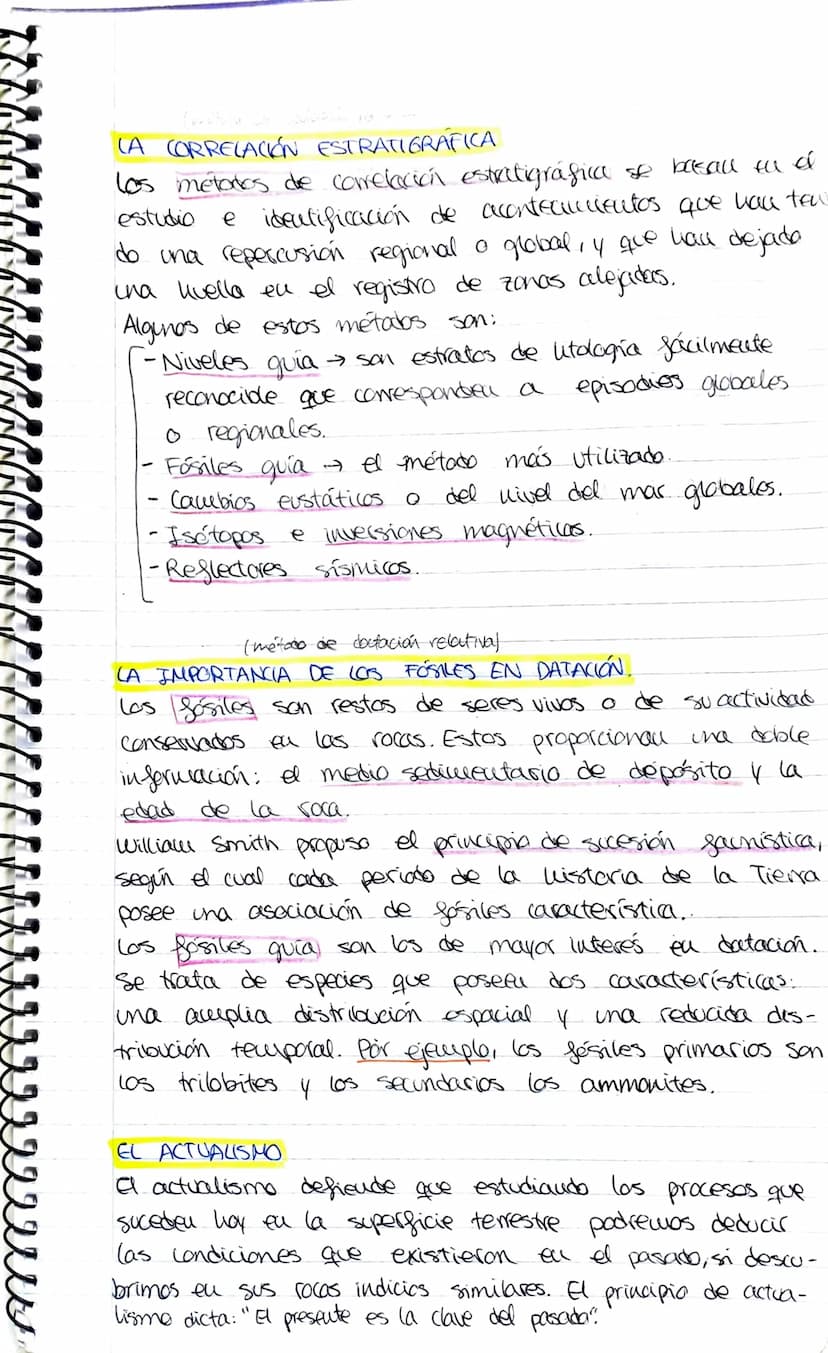 LA CORRELACIÓN ESTRATIGRÁFICA
Los métodos de correlación estratigráfica se basan en el
estudio e identificación de acontecimientos que han teni
do una repercusión regional o global, y que han dejado
una huella en el registro de zonas alejadas.
Algunos de estos métodos son:
- Niveles guía → son estratos de litología fácilmente
reconocible que corresponden a episodios globales
o regionales.
- Fósiles guía → el método más utilizado.
- Cambios eustáticos o del nivel del mar globales.
- Isótopos e inversiones magnéticas.
- Reflectores sísmicos.
(método de datación relativa)
LA IMPORTANCIA DE LOS FÓSILES EN DATACIÓN.
Los fósiles son restos de seres vivos o de su actividad
conservados en las rocas. Estos proporcionan una doble
información: el medio sedimentario de depósito y la
edad de la roca.
William Smith propuso el principio de sucesión faunística,
según el cual cada periodo de la historia de la Tierra
posee una asociación de fósiles característica.
Los fósiles guía son los de mayor interés en datación.
Se trata de especies que poseen dos características:
una amplia distribución espacial y una reducida dis-
tribución temporal. Por ejemplo, los fósiles primarios son
los trilobites y los secundarios los ammonites.
EL ACTUALISMO
El actualismo defiende que estudiando los procesos que
suceden hoy en la superficie terrestre podremos deducir
las condiciones que existieron en el pasado, si descu-
brimos en sus rocas indicios similares. El principio de actua-
lismo dicta: "El presente es la clave del pasado".